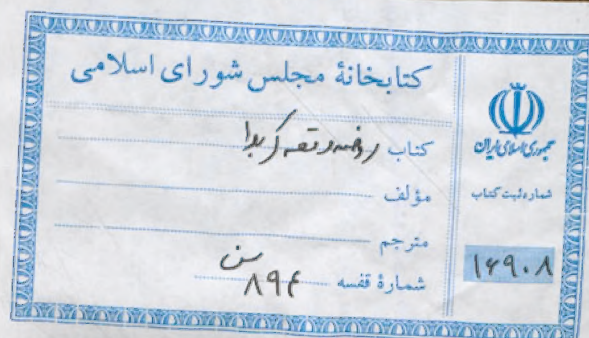 کتابخانهٔ مجلس شورای اسلامی
کتاب روضه و قصه کربلا
مؤلف
مترجم
شمارهٔ قفسه ۸۹۴ سن
جمهوری اسلامی ایران
شماره ثبت کتاب
۱۶۹۰۸